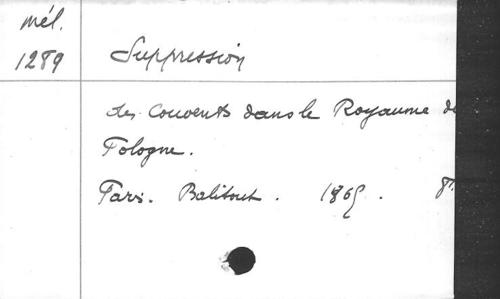 mél.
1289
Suppression
des Couvents dans le Royaume de
Pologne.
Paris. Balitout. 1865. 8°